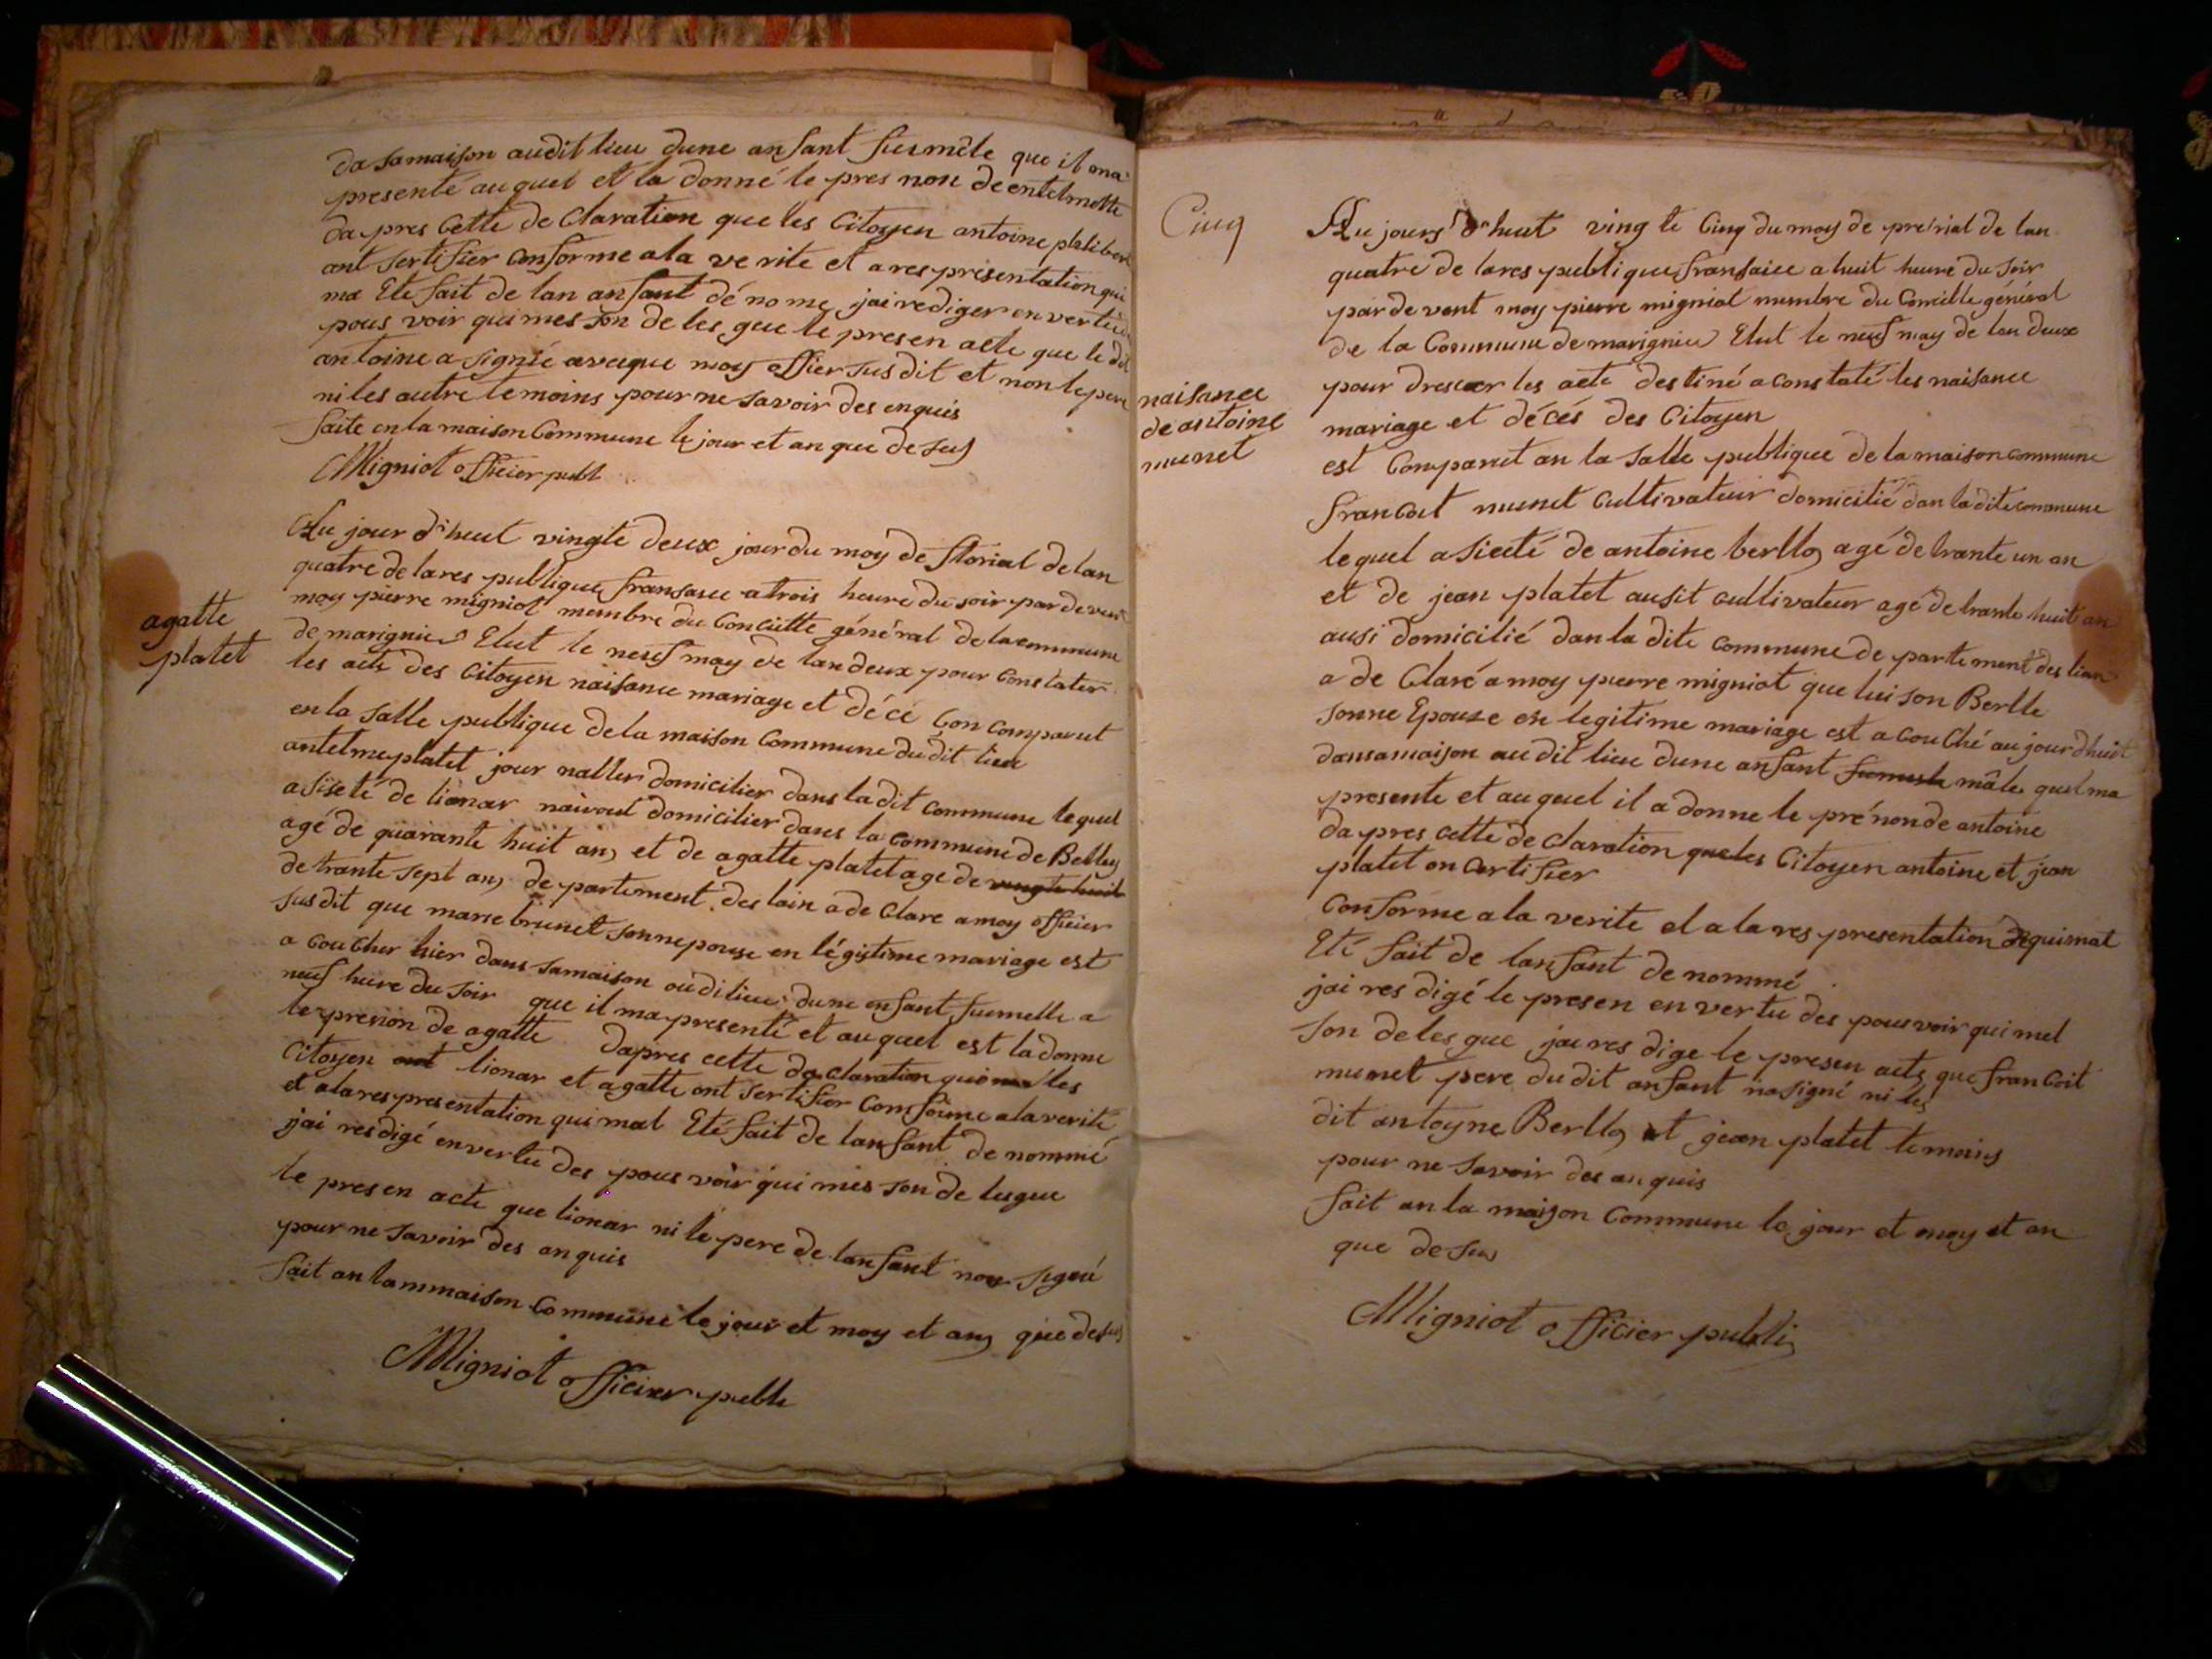 da samaison audit lieu dune anfant fuemêle que il ma
presenté auquel et la donné le pres non de entelmette
da pres cette de Claration que les Citoyen antoine philibert
ont sertifier conforme ala ve rite et a respresentation qui
ma Ete fait de lan anfant dé nome jai rediger en vertu
pous voir qui mes son de les gue le presen acte que le dit
antoine a signié aveque moy offier sus dit et non le pere
ni les autre temoins pour ne savoir des enquis
faite en la maison Commune le jour et an que de sus
Migniot officier publ
agatte
platet
Au jour d'huit vingte deux jour du moy de florial de lan
quatre de lares publique fransaice a trois heure du soir par devent
moy pierre migniot membre du Concielle général de la commune
de marignieu Elut le neuf may de lan deux pour constater
les acte des Citoyen naisance mariage et décé Con comparut
en la salle publique de la maison Commune du dit lieu
antelme platet jour nallier domicilier dans la dit Commune lequel
asisté de lionar domicilier dans la Commune de Belley
agé de quarante huit ans et de agatte platet age de vingte huit
de trante sept ans de partement des lain a de Clare a moy officier
sus dit que marie brunet sonnepouse en légistime mariage est
a coucher hier dans samaison oudi lieu dune enfant fuemelle a
neuf heure du soir que il ma presenté et auquel est la donne
le prenon de agatte dapres cette da claration que les
Citoyen ont lionar et agatte ont sertifier Comforme ala verité
et ala respresentation qui mat Eté fait de lanfant de nommé
jai resdigé en vertu des pous voir qui mes son de lesgue
le presen acte que lionar ni le pere de lanfant non signé
pour ne savoir des anquis
fait an lammaison Commune le jour et moy et ans que desus
Migniot officier puble
Cinq
naisance
de antoine
munet
Au jours d'huit vingte Cinq du moy de preirial de lan
quatre de lares publique fransaice a huit heure du soir
par de vent moy pierre migniot membre du Concielle général
de la Commune de marignieu Elut le neuf may de lan deux
pour dresser les acte destiné a constaté les naisance
mariage et décés des Citoyen
est Comparut an la salle publique de la maison commune
francoit munet Cultivateur domicilié dan la dite commune
lequel a sisté de antoine berllo agé de trante un an
et de jean platet ausit cultivateur agé de trante huit an
ausi domicilié dan la dite commune de partement des lian
a de Claré a moy pierre migniot que lui son Berlle
sonne Epouze en legitime mariage est a couché aujourdhuit
dansamaison au dit lieu dune anfant fuemele mâle quil ma
presente et auquel il a donne le prénon de antoine
da pres cette de claration que les Citoyen antoine et jean
platet on certifier
Conforme a la verite et a la res presentation qui mat
Eté fait de lanfant de nommé
jai res digé le presen en vertu des pous voir qui met
son de les gue jai res dige le presen acte que francoit
munet pere du dit anfant na signé ni les
dit antoyne Berllo et jean platet temoins
pour ne savoir des anquis
fait an la maison Commune le jour et moy et an
que de sus
Migniot officier publi